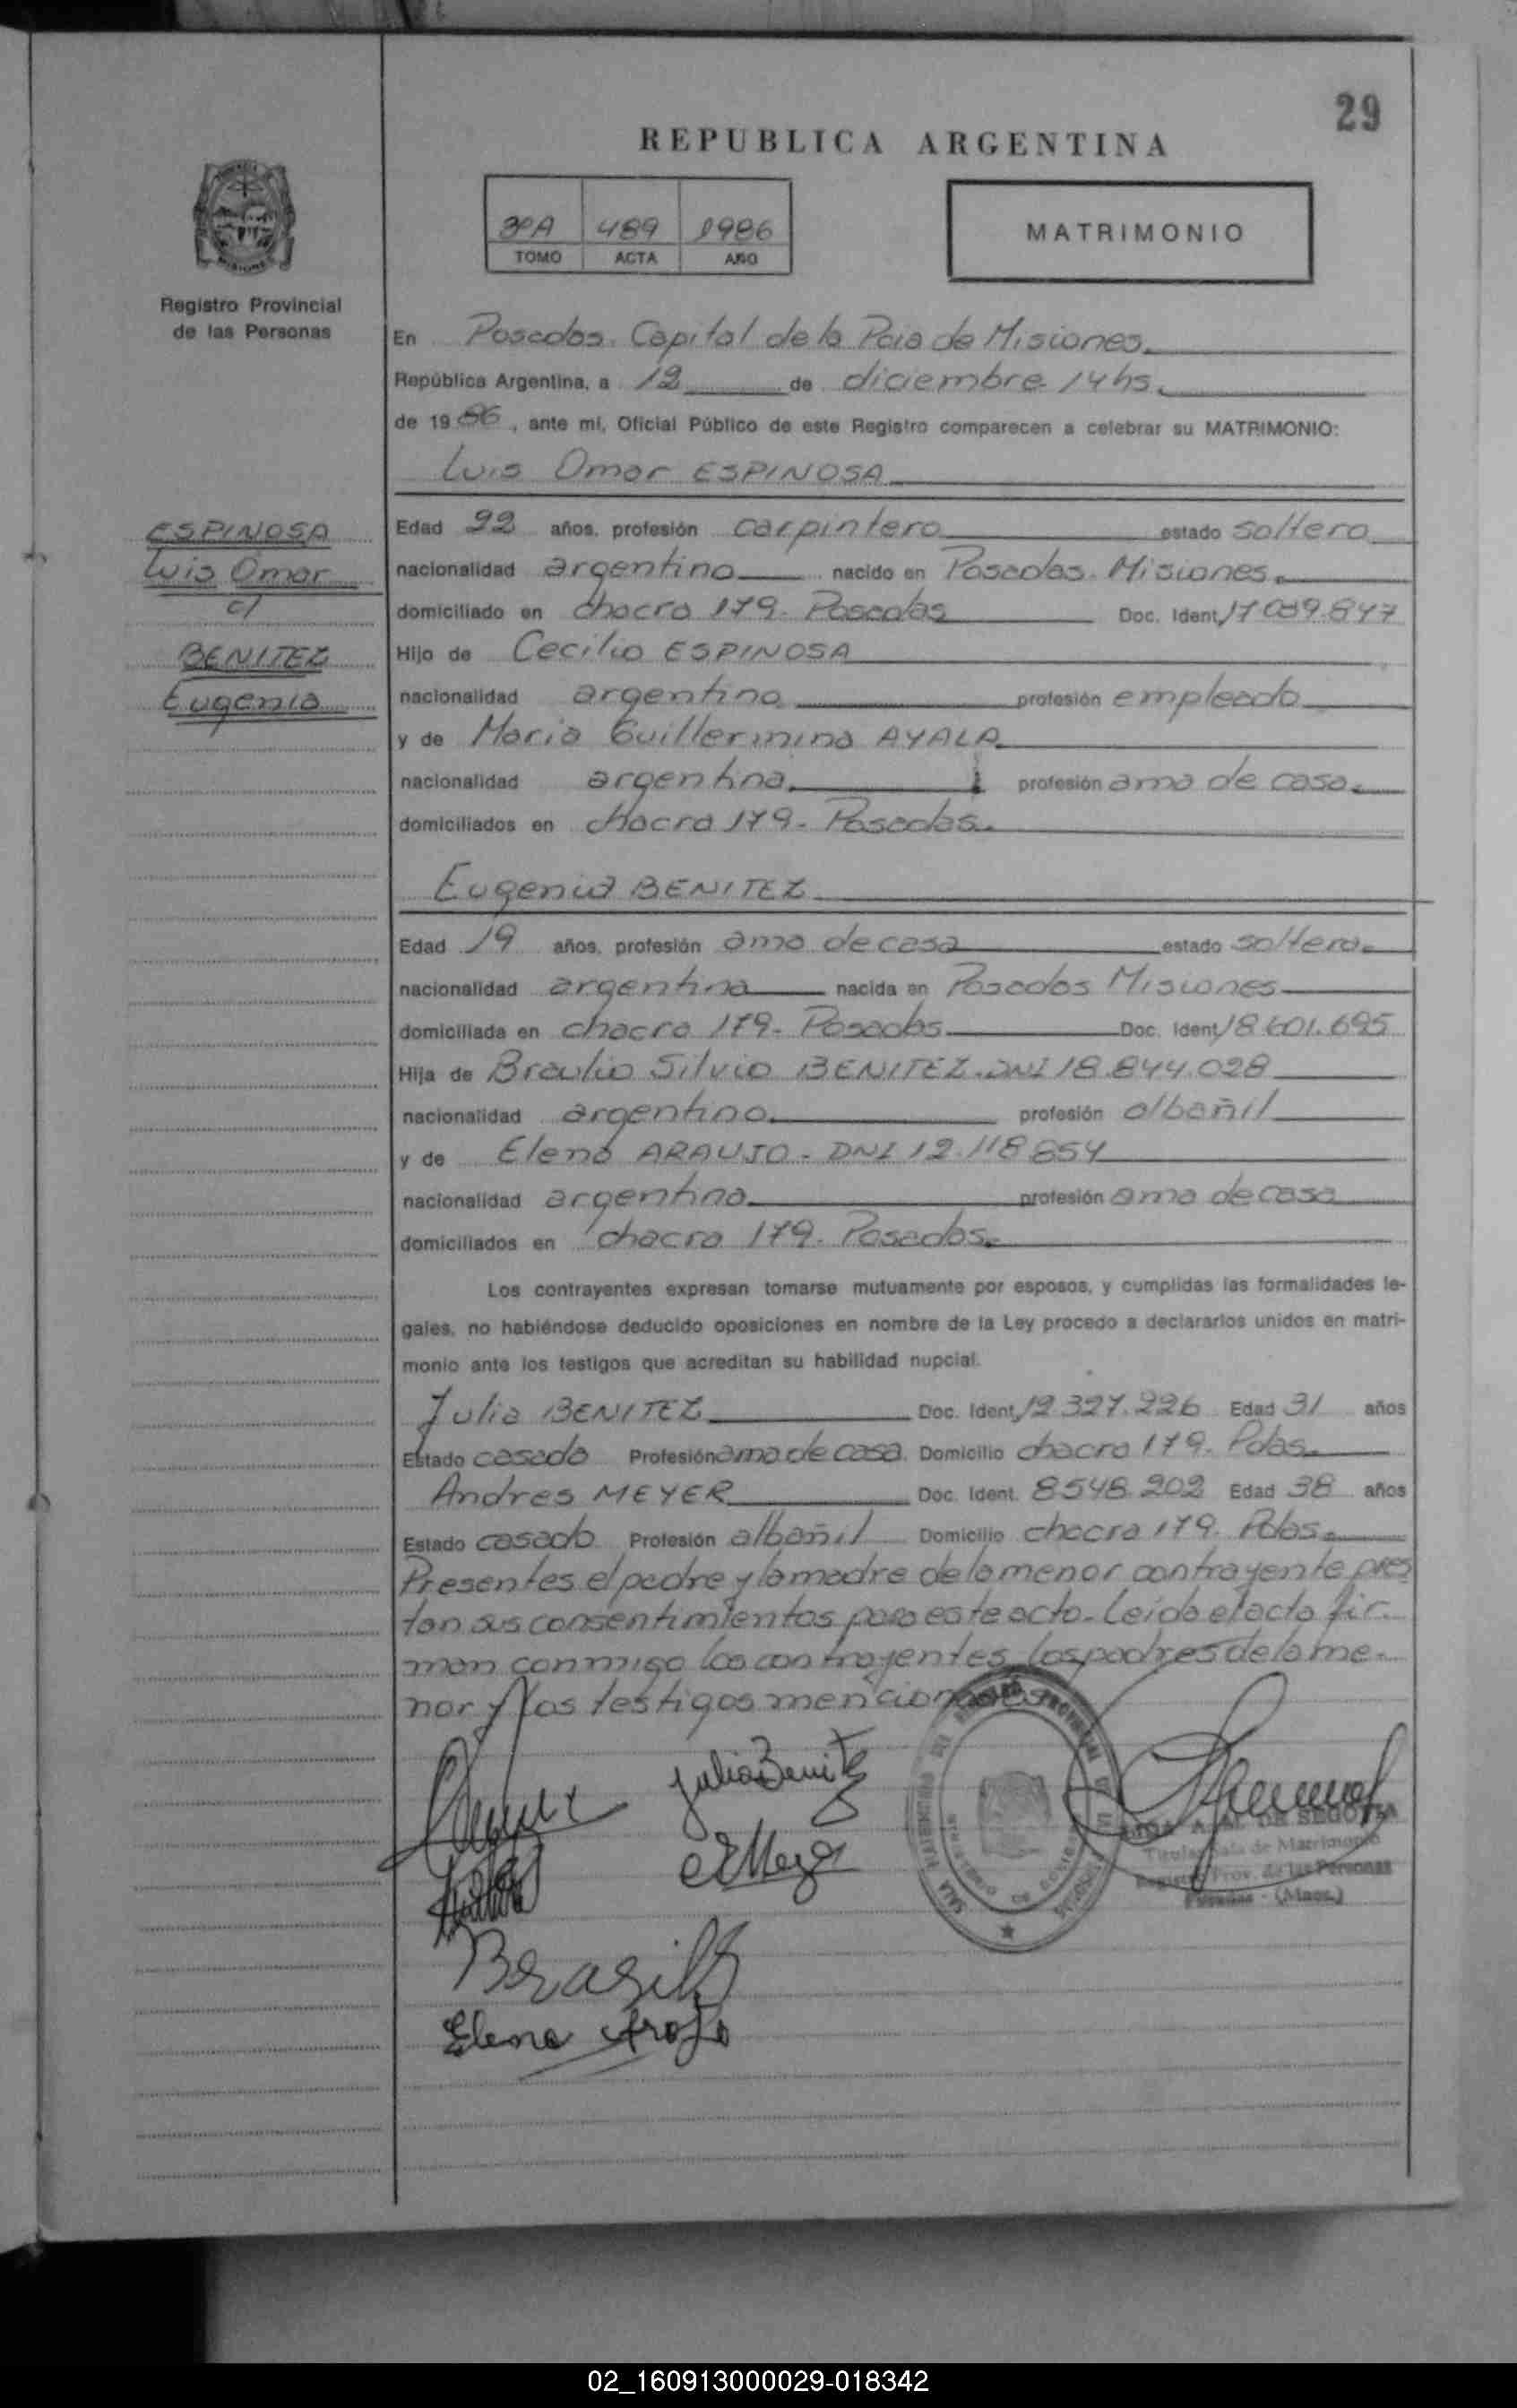 29
REPUBLICA ARGENTINA
3ºA 489 1986
TOMO ACTA AÑO
MATRIMONIO
Registro Provincial
de las Personas
En Posadas. Capital de la Pcia de Misiones.
República Argentina, a 12 de diciembre 14hs.
de 1986, ante mí, Oficial Público de este Registro comparecen a celebrar su MATRIMONIO:
Luis Omar ESPINOSA
ESPINOSA
Luis Omar
c/
BENITEZ
Eugenia
Edad 22 años, profesión carpintero estado soltero
nacionalidad argentino nacido en Posadas. Misiones.
domiciliado en chacra 179. Posadas Doc. Ident. 17.039.847
Hijo de Cecilio ESPINOSA
nacionalidad argentina profesión empleado
y de Maria Guillermina AYALA
nacionalidad argentina. profesión ama de casa.
domiciliados en chacra 179- Posadas.
Eugenia BENITEZ
Edad 19 años, profesión ama de casa estado soltera.
nacionalidad argentina nacida en Posadas Misiones
domiciliada en chacra 179- Posadas. Doc. Ident. 18.601.695
Hija de Braulio Silvio BENITEZ. DNI 18.844.028
nacionalidad argentino. profesión albañil
y de Elena ARAUJO - DNI 12.118.854
nacionalidad argentina profesión ama de casa
domiciliados en chacra 179. Posadas.
Los contrayentes expresan tomarse mutuamente por esposos, y cumplidas las formalidades le-
gales, no habiéndose deducido oposiciones en nombre de la Ley procedo a declararlos unidos en matri-
monio ante los testigos que acreditan su habilidad nupcial.
Julia BENITEZ Doc. Ident. 12.327.226 Edad 31 años
Estado casada Profesión ama de casa. Domicilio chacra 179. Pdas.
Andres MEYER Doc. Ident. 8548.202 Edad 38 años
Estado casado Profesión albañil Domicilio chacra 179. Pdas.
Presentes el padre y la madre de la menor contrayente pres
tan sus consentimientos para este acto. Leída el acta fir-
man conmigo los contrayentes, los padres de la me-
nor y los testigos mencionados
Julia Benitez
Meyer
DE SEGOVIA
Titular Sala de Matrimonio
Registro Prov. de las Personas
Posadas - (Mnes.)
Elena
02_160913000029-018342